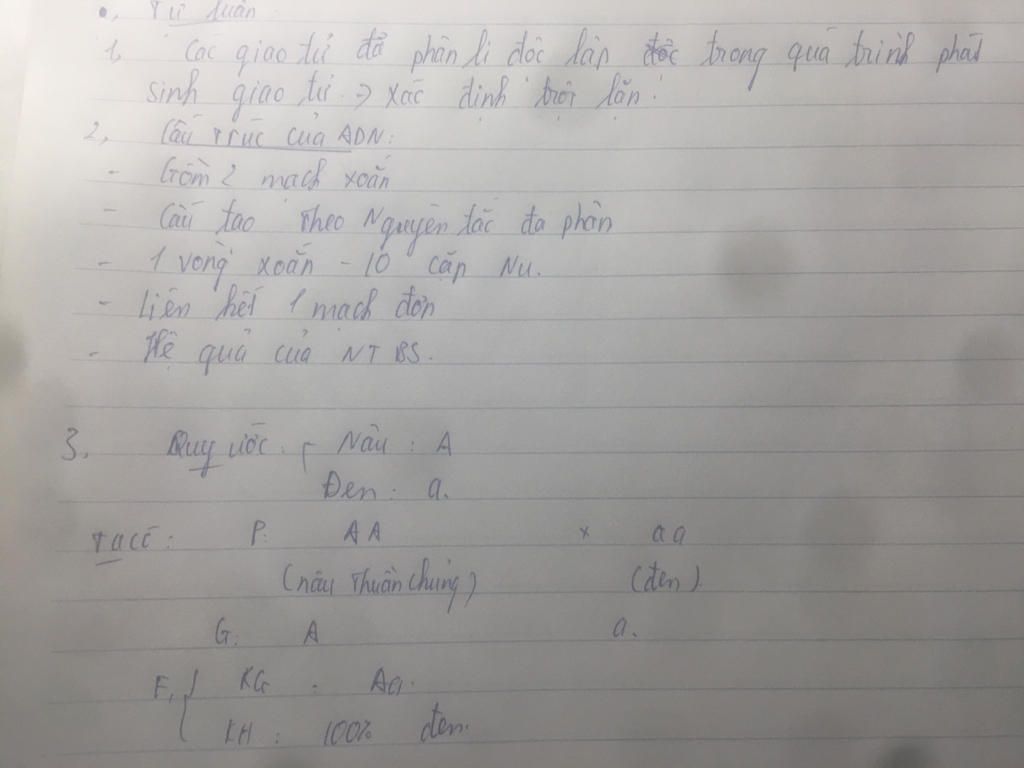 •, Tự luận
1, Các giao tử đã phân li độc lập trong quá trình phát
sinh giao tử => xác định trội lặn.
2, Cấu trúc của ADN:
- Gồm 2 mạch xoắn
- Cấu tạo theo Nguyên tắc đa phân
- 1 vòng xoắn - 10 cặp Nu.
- Liên kết 1 mạch đơn
- Hệ quả của NTBS.
3, Quy ước: Nâu : A
Đen : a.
Ta có: P: AA x aa
(nâu thuần chủng) (đen)
G: A a.
F1 { KG : Aa.
KH : 100% đen.